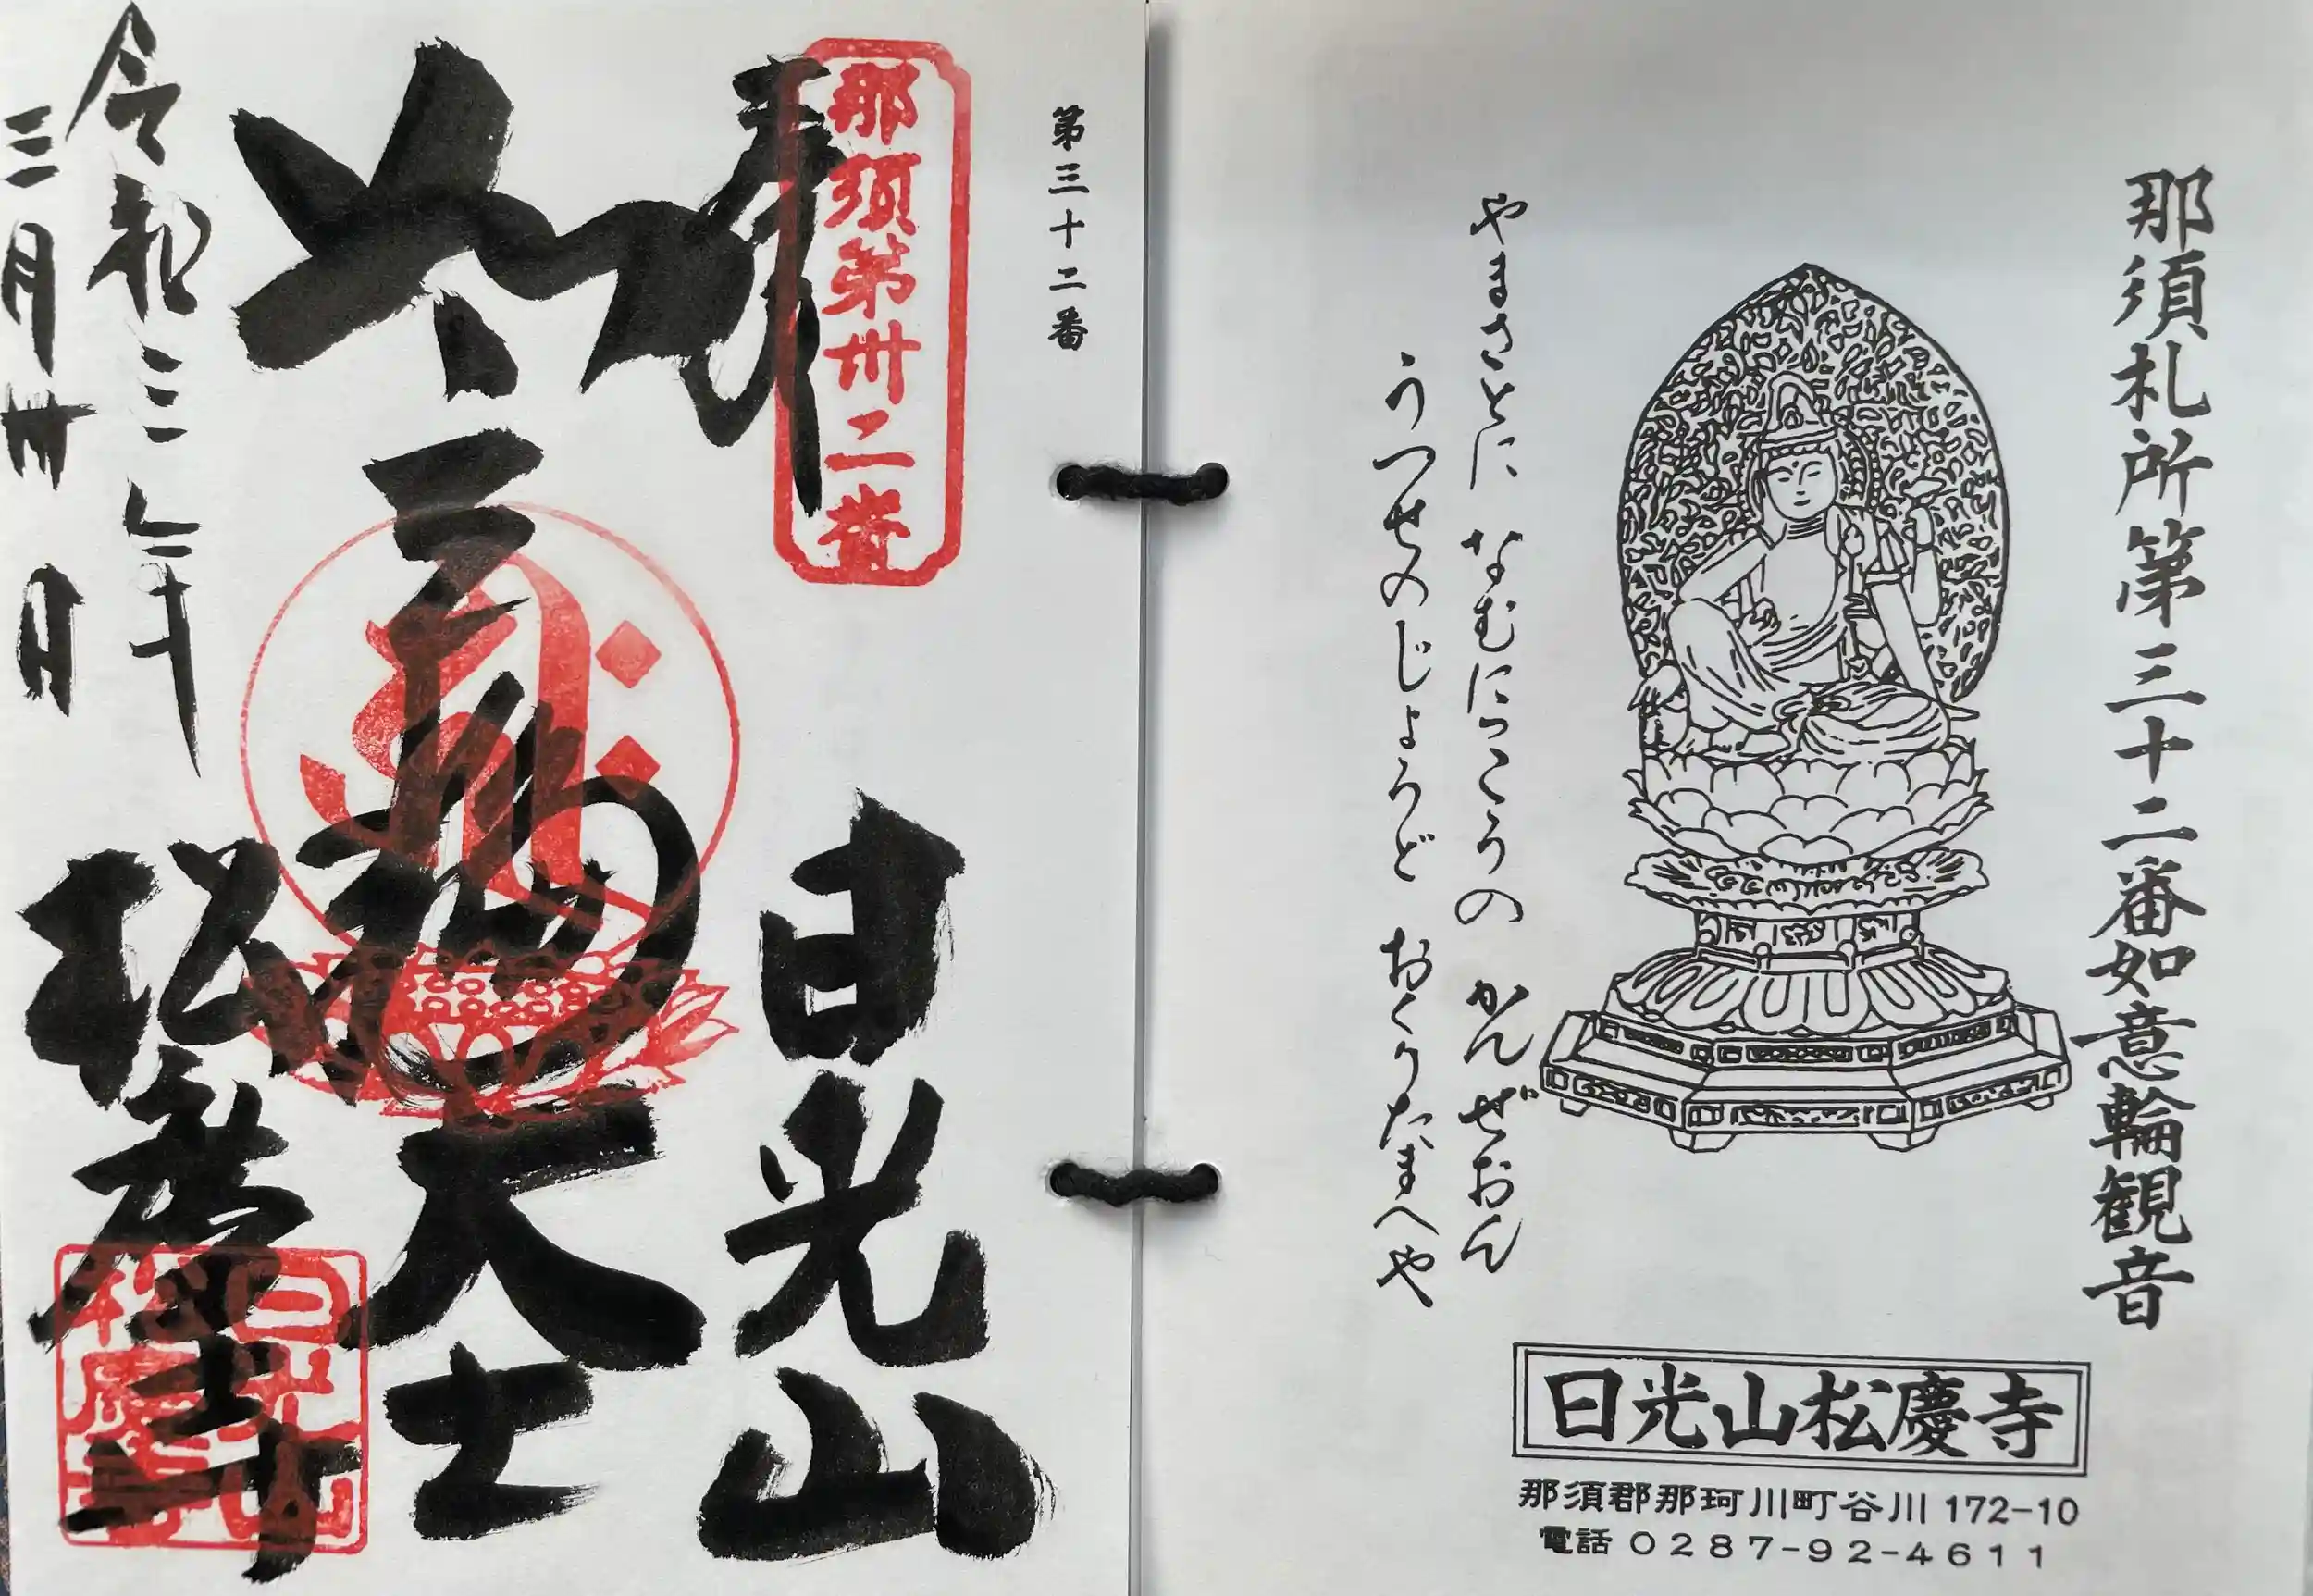 那須札所第三十二番如意輪観音
やまさとに なむにっこうの かんぜおん
うつせのじょうど おくりたまへや
日光山松慶寺
那須郡那珂川町谷川 172-10
電話 0287-92-4611
第三十二番
那須第卅二番
奉拝
日光山
大士
令和三年
三月卅日
松慶寺
日光山
松慶寺